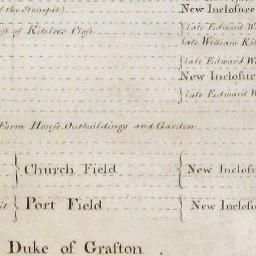 (the Stonepit) New Inclosure
late Edward W
of Kitelees Close late William Kit
late Edward W
New Inclosure
late Edward W
Farm House, Outbuildings and Garden
Church Field New Inclosu
Port Field New Inclosu
Duke of Grafton .